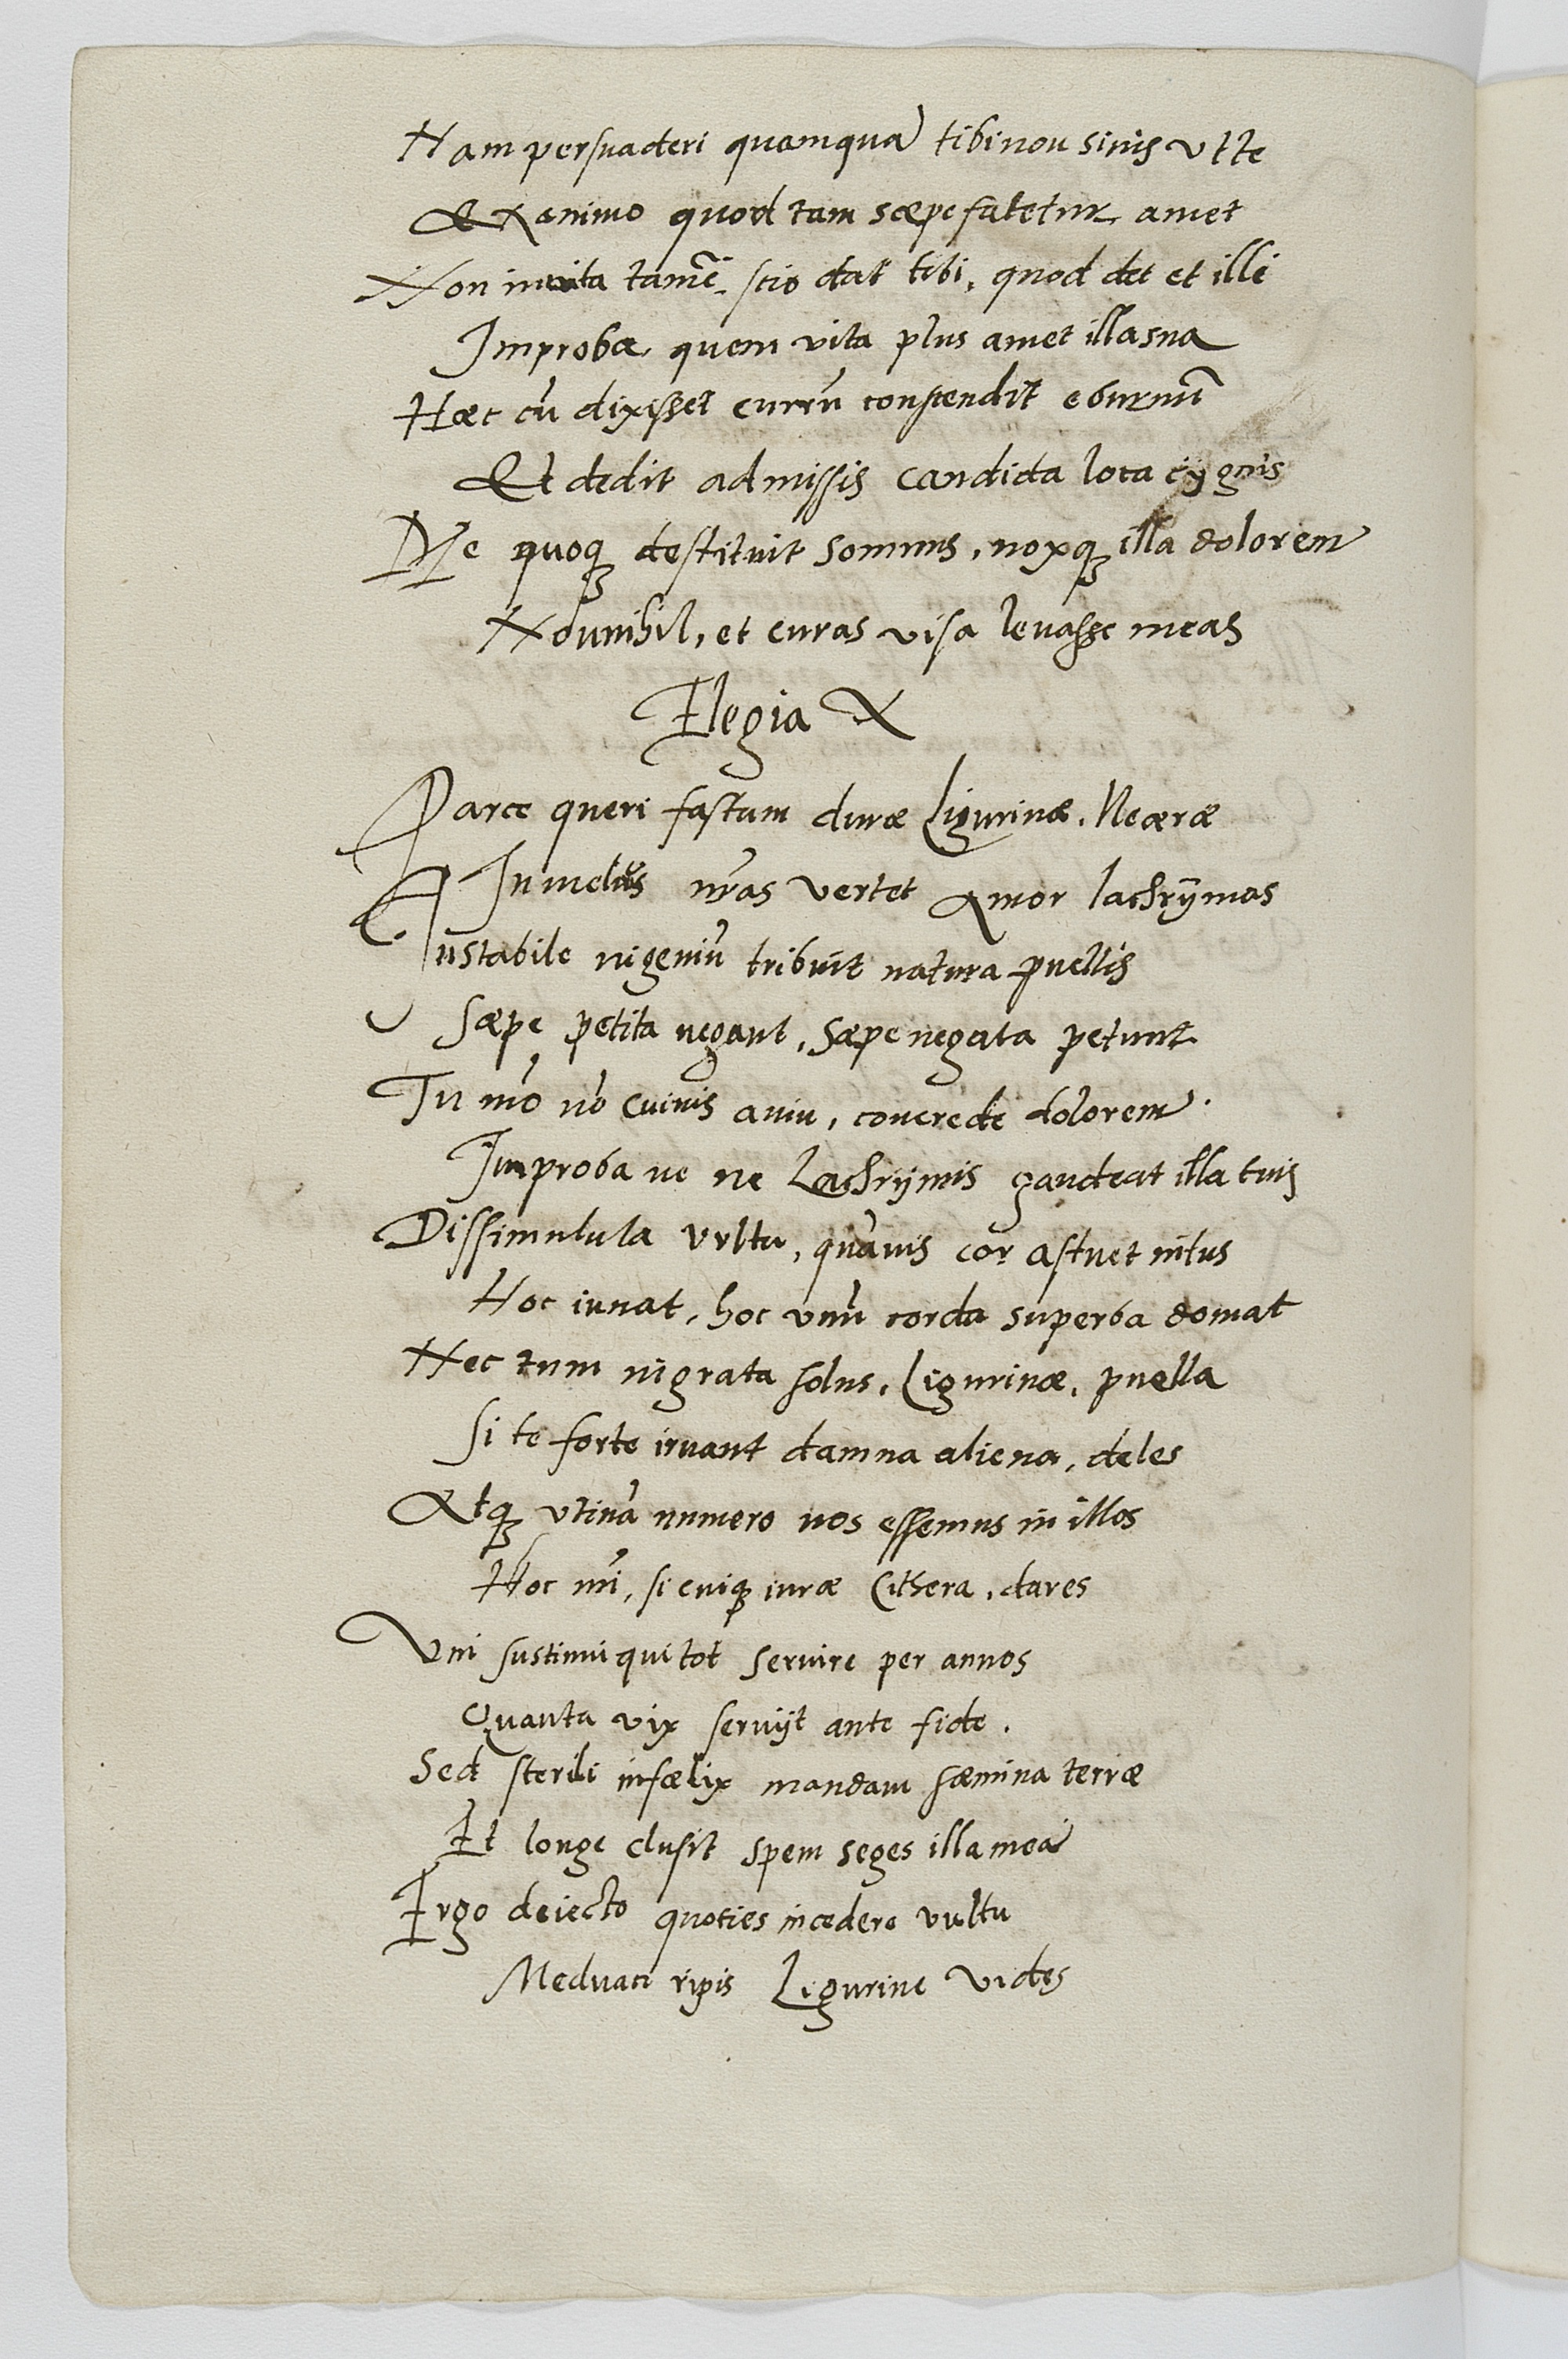 Nam persuaderi quamquã tibi non sinis ut te
Ex animo quod tam sæpe fatetur amet
Non invita tamẽ scio dat tibi, quod det et illi
Improba quem vita plus amet illa sua
Hæc cũ dixisset currũ conscendit eburnũ
Et dedit admissis candida lora cygnis
Me quoqȝ destituit somnus, noxqȝ illa dolorem
Nõnnihil, et curas visa levasse meas
Elegia X
Parce queri fastum duræ Ligurinæ. Neæræ
In melius nr̃as vertet Amor lachrymas
Instabile ingeniũ tribuit natura puellis
Sæpe petita negant, sæpe negata petunt
Tu mõ nõ cuivis aniu, concrede dolorem.
Improba ne ne Lachrymis gaudeat illa tuis
Dissimulula vultu, quãvis cor æstuet intus
Hoc iuvat, hoc unũ corda superba domat
Nec tum ingrata solus, Ligurinæ, puella
Si te forte iuvant damna aliena, doles
Atqȝ utinã numero nos essemus in illos
Hoc mĩ, si cuiqȝ iuræ Cithera, dares
Uni sustinui qui tot servire per annos
Quanta vix serviit ante fide.
Sed sterili infælix mandam sæmina terræ
Et longe clusit spem seges illa meã
Ergo deiecto quoties incedere vultu
Meduaci ripis Ligurine vides